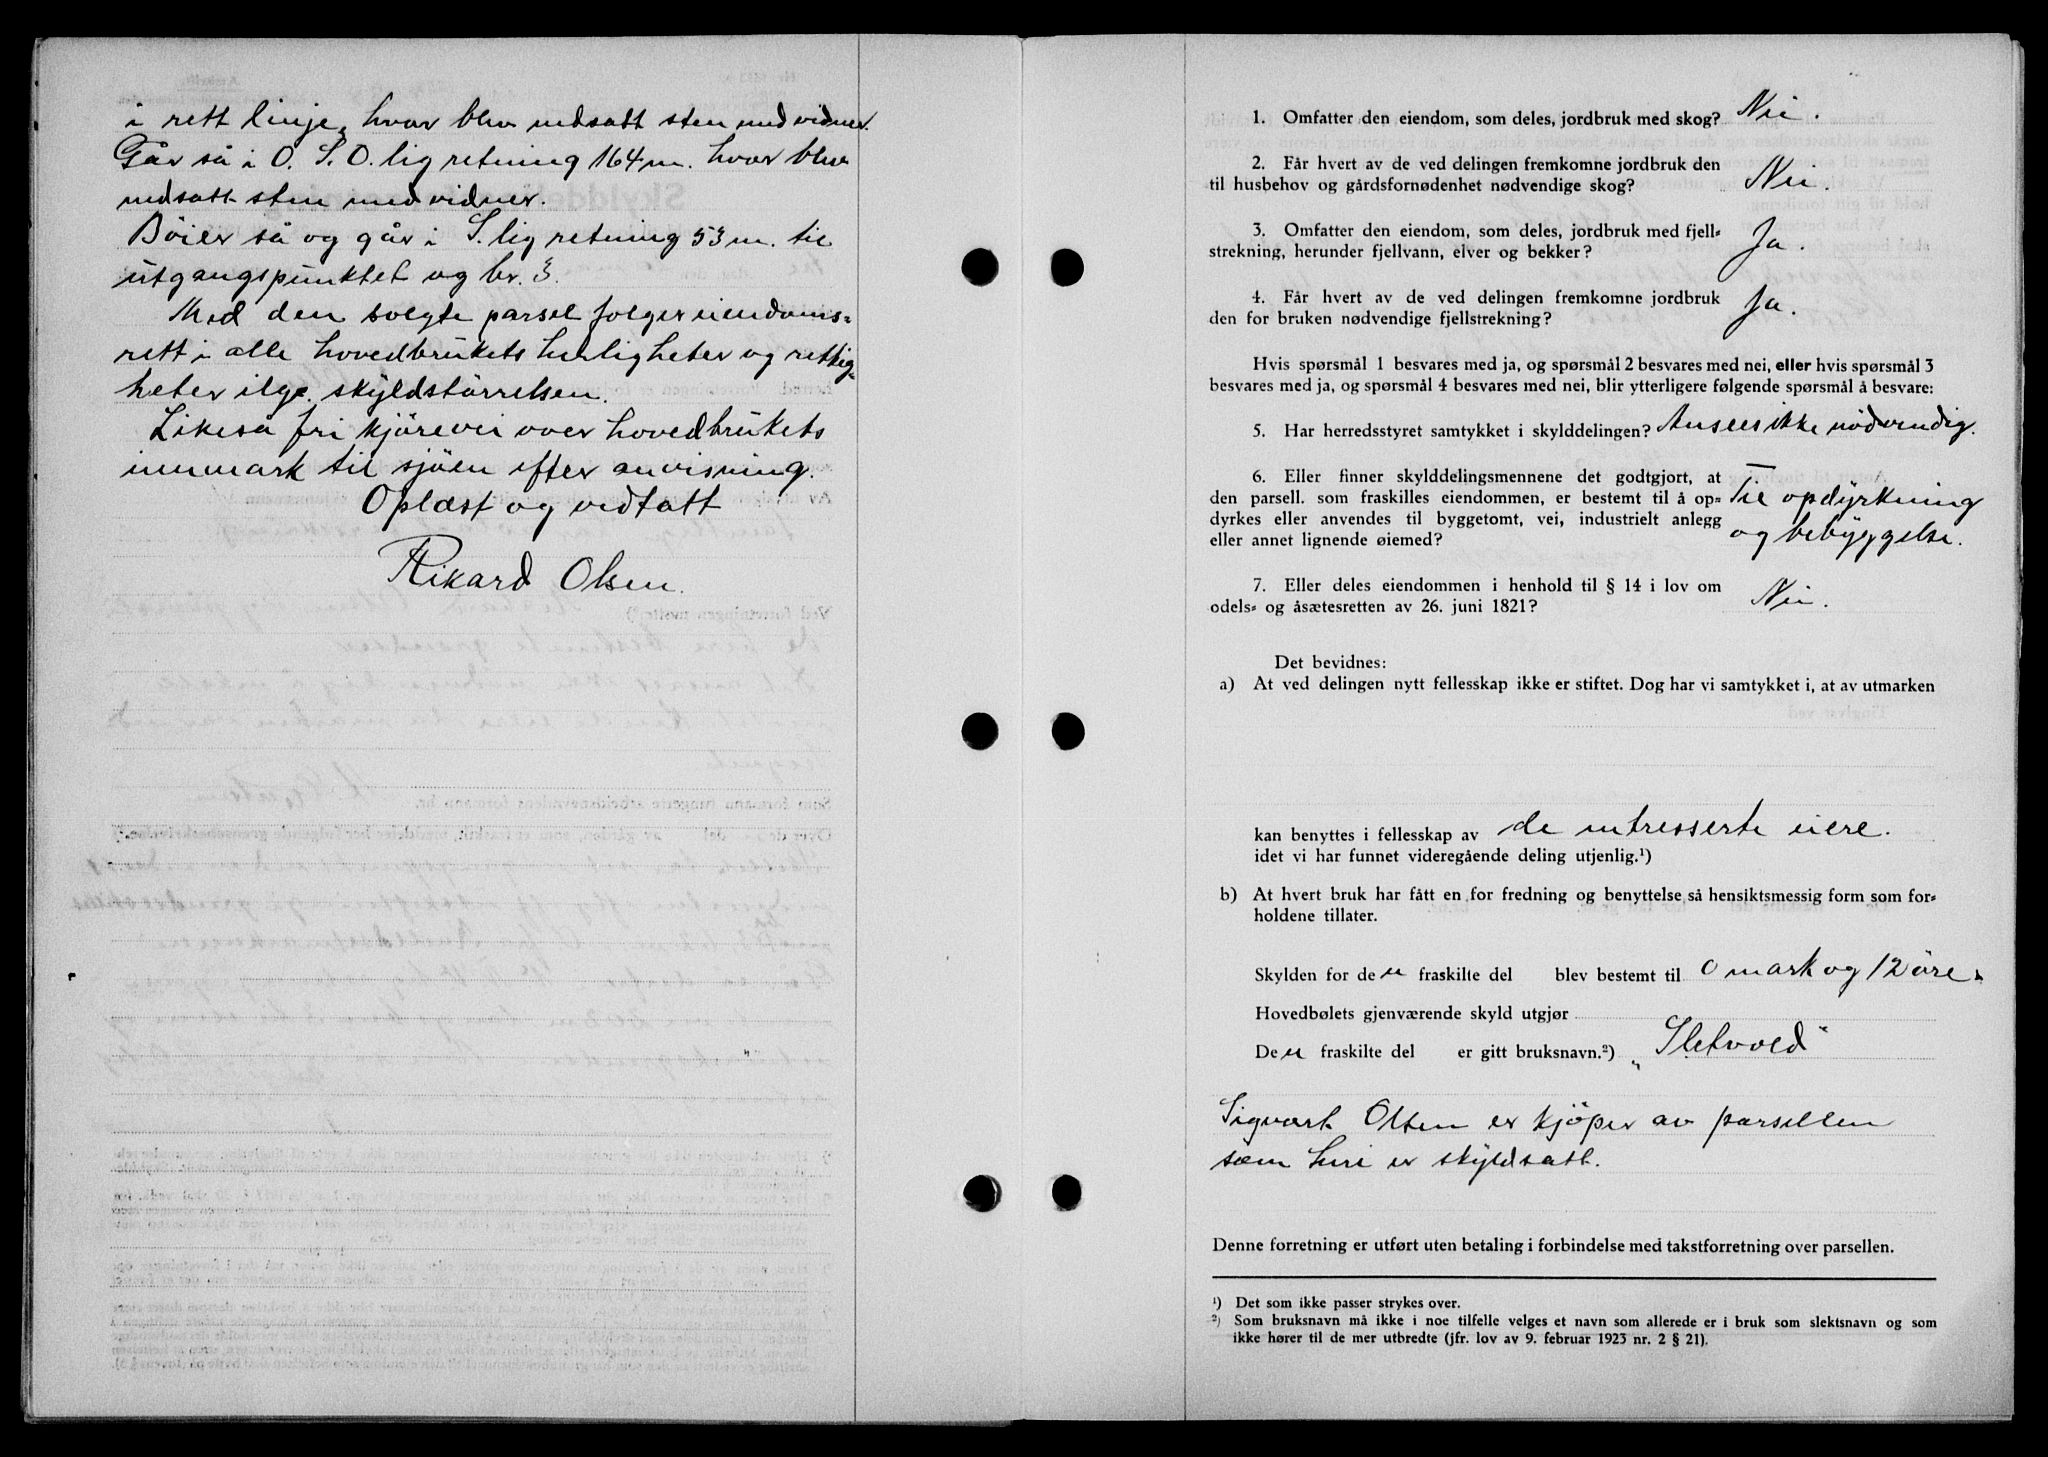 i rett linje, hvor blev nedsatt sten med vidner.
Går så i O. S. O. lig retning 164 m. hvor blev
nedsatt sten med vidner.
Böier så og går i S. lig retning 53 m. til
utgangspunktet og br. 3.
Med den solgte parsel følger eiendoms-
rett i alle hovedbrukets herligheter og rettig-
heter ifge. skyldstörrelsen.
Likeså fri kjörevei over hovedbrukets
innmark til sjöen efter anvisning.
Oplæst og vedtatt
Rikard Olsen.
1. Omfatter den eiendom, som deles, jordbruk med skog? Nei.
2. Får hvert av de ved delingen fremkomne jordbruk den
til husbehov og gårdsfornødenhet nødvendige skog? Nei.
3. Omfatter den eiendom, som deles, jordbruk med fjell-
strekning, herunder fjellvann, elver og bekker? Ja.
4. Får hvert av de ved delingen fremkomne jordbruk
den for bruken nødvendige fjellstrekning? Ja.
Hvis spørsmål 1 besvares med ja, og spørsmål 2 besvares med nei, eller hvis spørsmål 3
besvares med ja, og spørsmål 4 besvares med nei, blir ytterligere følgende spørsmål å besvare:
5. Har herredsstyret samtykket i skylddelingen? Ansees ikke nødvendig.
6. Eller finner skylddelingsmennene det godtgjort, at
den parsell. som fraskilles eiendommen, er bestemt til å op- Til opdyrkning
dyrkes eller anvendes til byggetomt, vei, industrielt anlegg
eller annet lignende øiemed? og bebyggelse.
7. Eller deles eiendommen i henhold til § 14 i lov om
odels- og åsætesretten av 26. juni 1821? Nei.
Det bevidnes:
a) At ved delingen nytt fellesskap ikke er stiftet. Dog har vi samtykket i, at av utmarken
kan benyttes i fellesskap av de intresserte eiere.
idet vi har funnet videregående deling utjenlig.¹)
b) At hvert bruk har fått en for fredning og benyttelse så hensiktsmessig form som for-
holdene tillater.
Skylden for den fraskilte del blev bestemt til 0 mark og 12 öre.
Hovedbølets gjenværende skyld utgjør
Den fraskilte del er gitt bruksnavn.²) „Sletvold"
Sigvart Olsen er kjöper av parsellen
som heri er skyldsatt.
Denne forretning er utført uten betaling i forbindelse med takstforretning over parsellen.
¹) Det som ikke passer strykes over.
²) Som bruksnavn må ikke i noe tilfelle velges et navn som allerede er i bruk som slektsnavn og som
ikke hører til de mer utbredte (jfr. lov av 9. februar 1923 nr. 2 § 21).